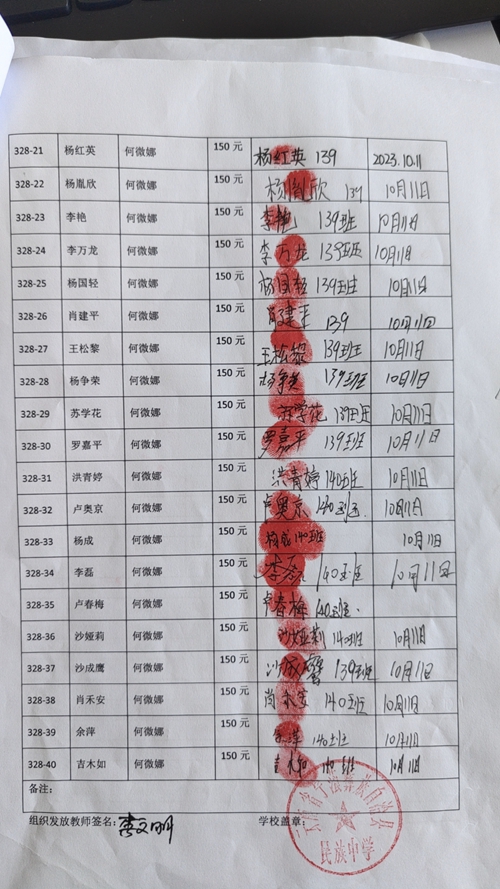 328-21 杨红英 何微娜 150 元 杨红英 139 2023.10.11
328-22 杨胤欣 何微娜 150 元 杨胤欣 139 10月11日
328-23 李艳 何微娜 150 元 李艳 139班 10月11日
328-24 李万龙 何微娜 150 元 李万龙 139班 10月11日
328-25 杨国轻 何微娜 150 元 杨国轻 139班 10月11日
328-26 肖建平 何微娜 150 元 肖建平 139 10月11日
328-27 王松黎 何微娜 150 元 王松黎 139班 10月11日
328-28 杨争荣 何微娜 150 元 杨争荣 139班 10月11日
328-29 苏学花 何微娜 150 元 苏学花 139班 10月11日
328-30 罗嘉平 何微娜 150 元 罗嘉平 139班 10月11日
328-31 洪青婷 何微娜 150 元 洪青婷 140班 10月11日
328-32 卢奥京 何微娜 150 元 卢奥京 140班. 10月11日
328-33 杨成 何微娜 150 元 杨成 140班 10月11日
328-34 李磊 何微娜 150 元 李磊 140班 10月11日
328-35 卢春梅 何微娜 150 元 卢春梅 140班.
328-36 沙娅莉 何微娜 150 元 沙娅莉 140班 10月11日
328-37 沙成鹰 何微娜 150 元 沙成鹰 139班 10月11日
328-38 肖禾安 何微娜 150 元 肖禾安 140班 10月11日
328-39 余萍 何微娜 150 元 余萍 140班 10月11日
328-40 吉木如 何微娜 150 元 吉木如 140班 10月11日
备注:
组织发放教师签名: 学校盖章:
彝族自治县
民族中学